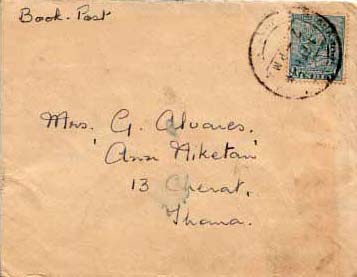 Book-Post
Mrs. G. Alvares,
'Ann Niketan'
13 Cherat,
Thana.